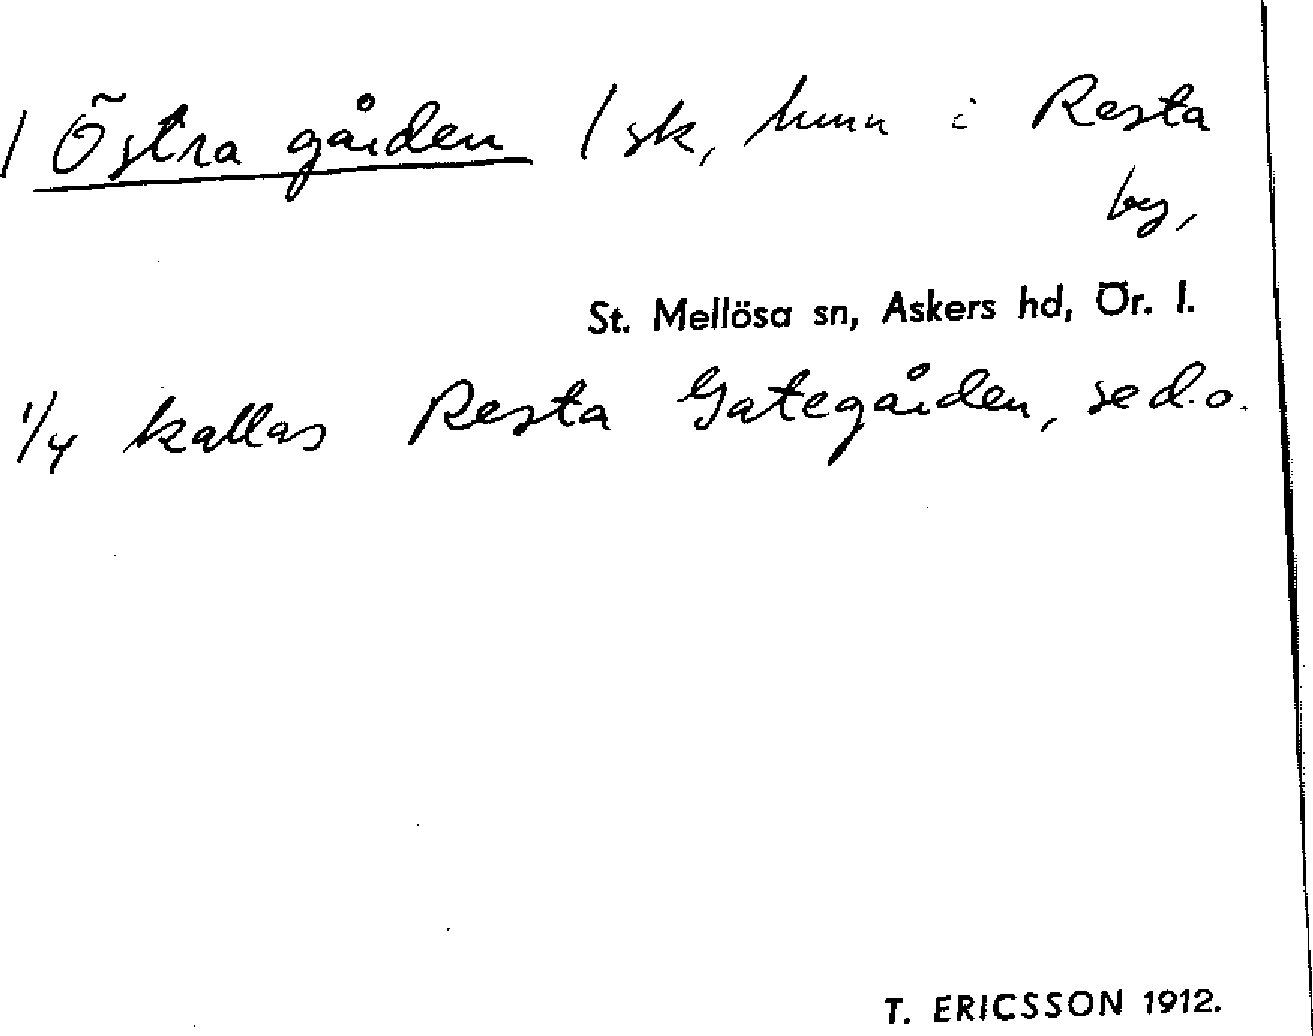 / Östra gården / sk, hmn i Resta
by,
St. Mellösa sn, Askers hd, Ör. l.
1/4 kallas Resta Gategården, se d.o.
T. ERICSSON 1912.